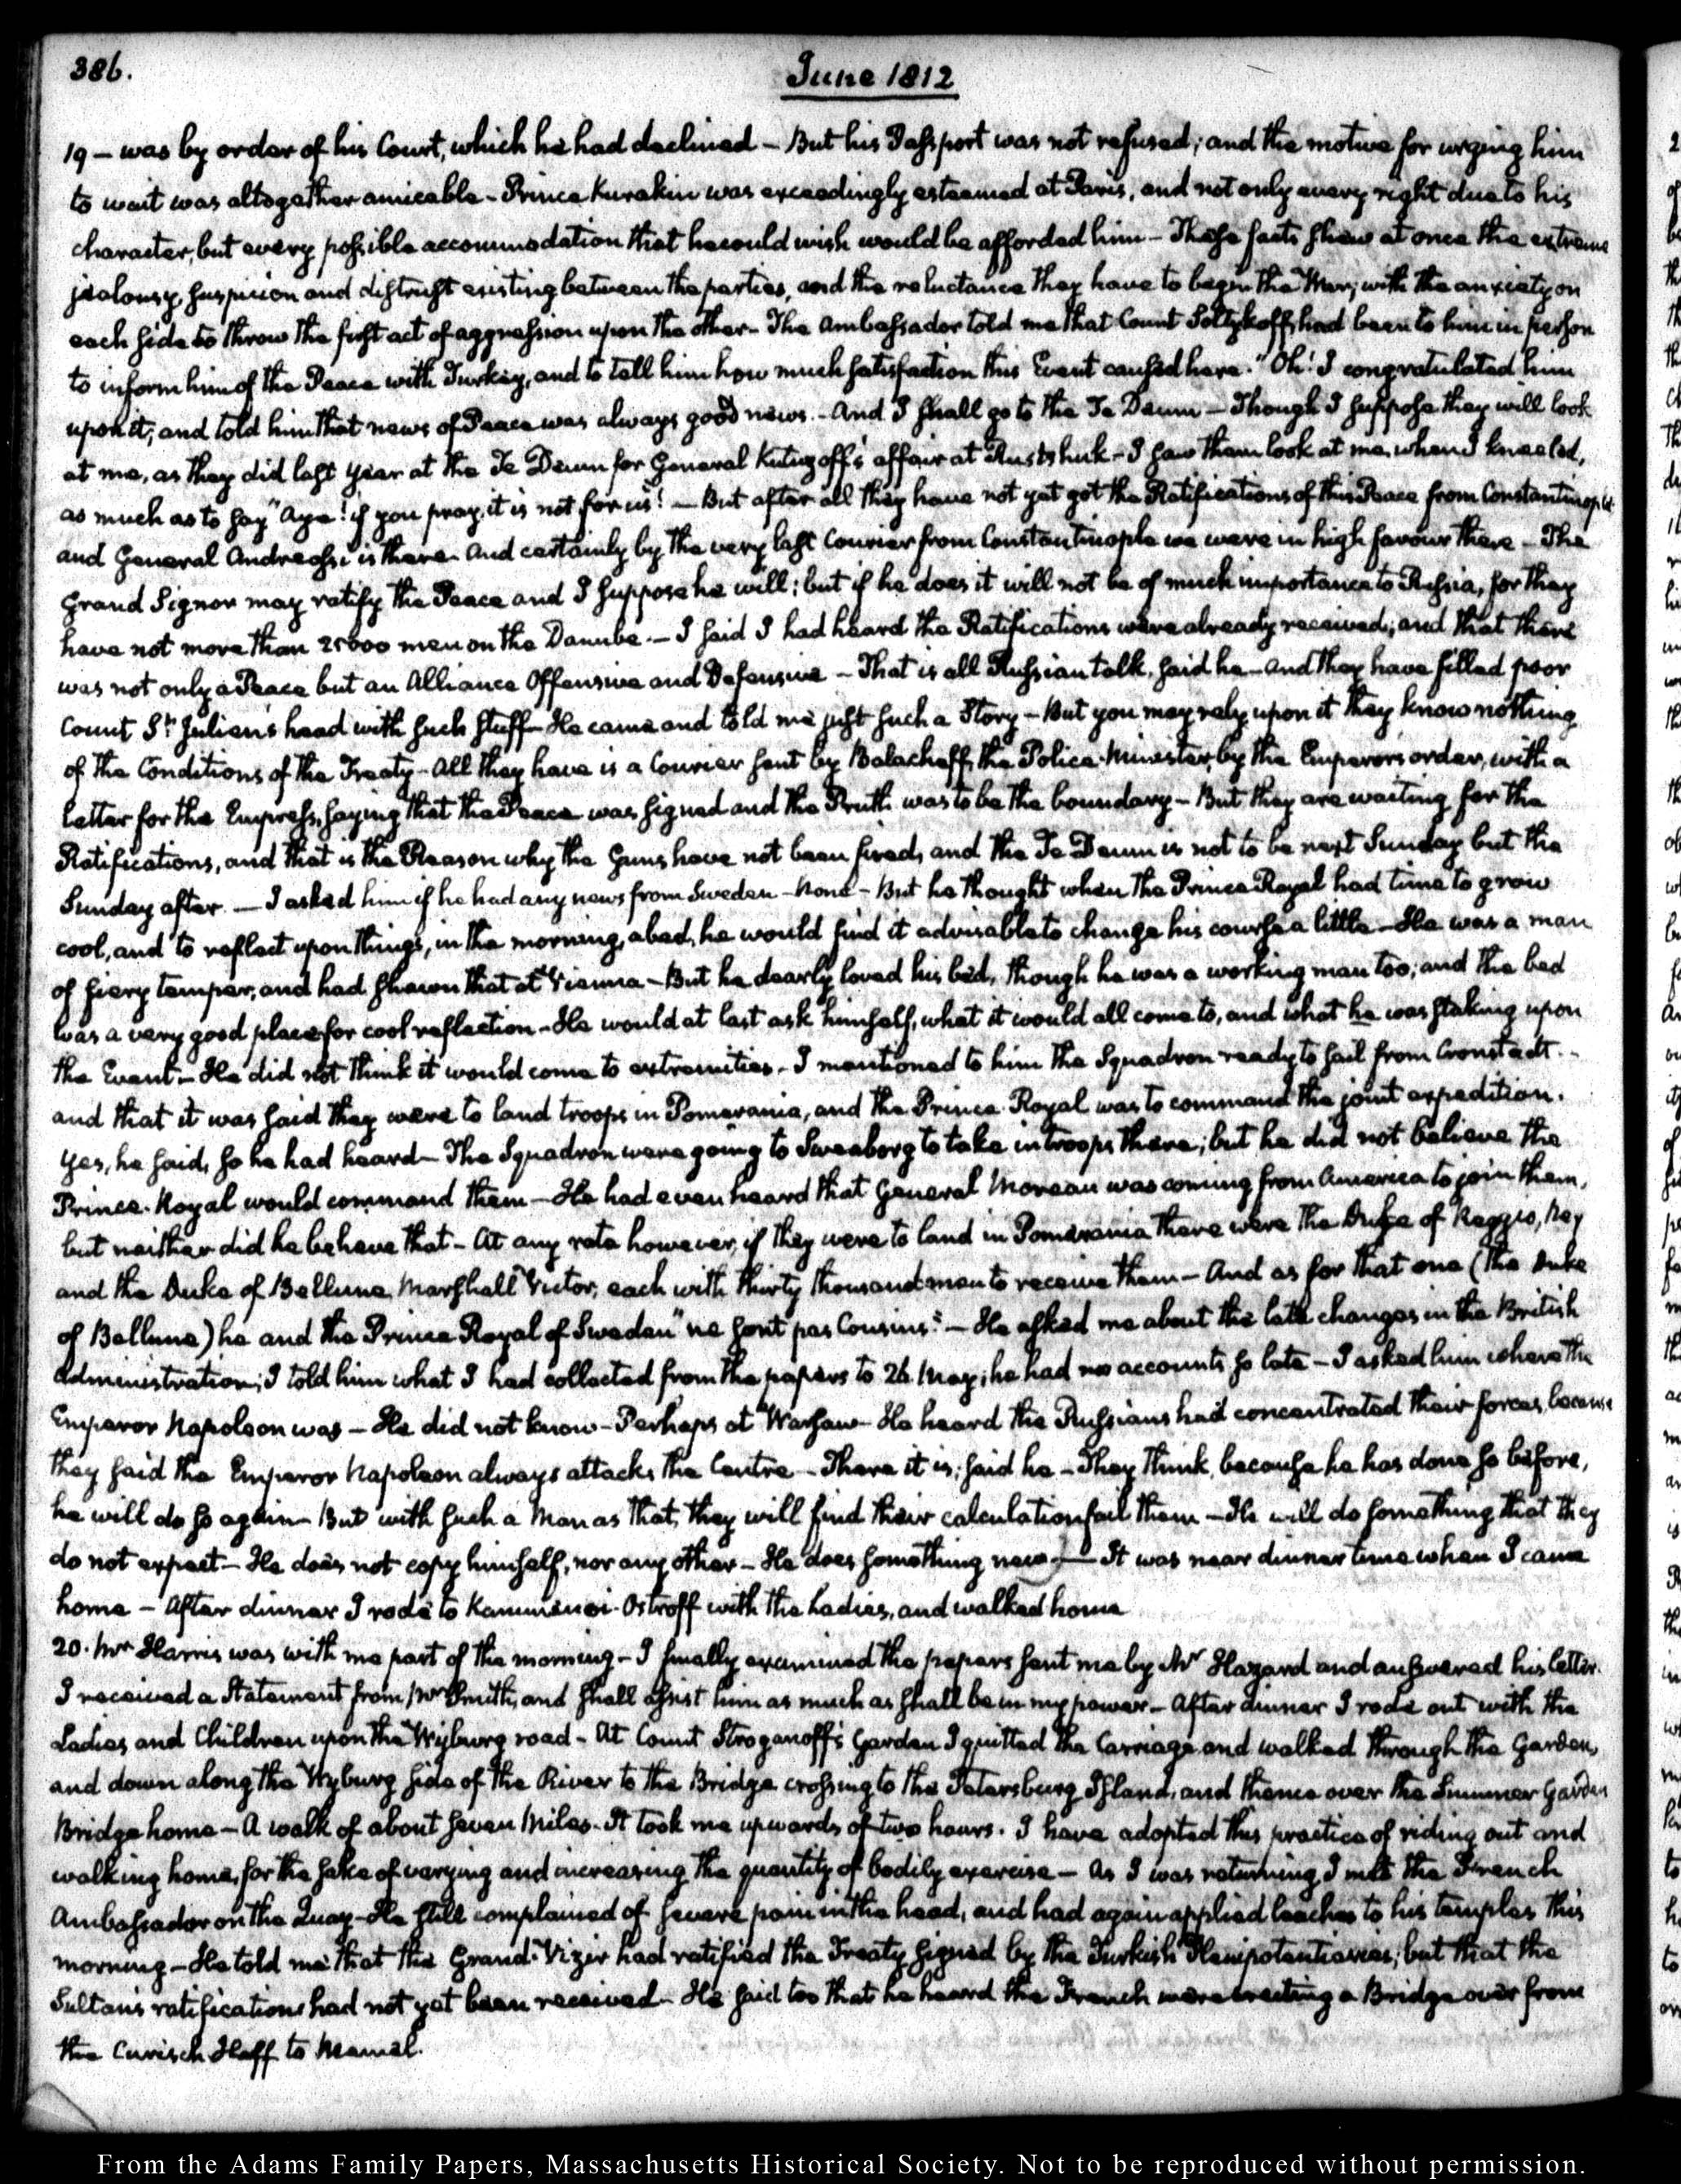 386.
June 1812
19 – was by order of his Court, which he had declined – But his Passport was not refused; and the motive for urging him
to wait was altogether amicable – Prince Kurakin was exceedingly esteemed at Paris, and not only every right due to his
character, but every possible accommodation that he could wish would be afforded him – These facts shew at once the extreme
jealousy, suspicion and distrust existing between the parties, and the reluctance they have to begin the War; with the anxiety on
each side to throw the first act of aggression upon the other – The Ambassador told me that Count Soltykoff had been to him in person
to inform him of the Peace with Turkey, and to tell him how much satisfaction this Event caused here. "Oh! I congratulated him
upon it; and told him that news of Peace was always good news. – And I shall go to the Te Deum – Though I suppose they will look
at me, as they did last year at the Te Deum for General Kutuzoff's affair at Rustshuk – I saw them look at me, when I kneeled,
as much as to say "Aye! if you pray, it is not for us! – But after all they have not yet got the Ratifications of this Peace from Constantinople
and General Andreossi is there. And certainly by the very last Courier from Constantinople we were in high favour there – The
Grand Signor may ratify the Peace and I suppose he will; but if he does it will not be of much importance to Russia, for they
have not more than 25000 men on the Danube. – I said I had heard the Ratifications were already received; and that there
was not only a Peace but an Alliance Offensive and Defensive – That is all Russian talk, said he – and they have filled poor
Count St. Julien's head with such stuff – He came and told me just such a Story – But you may rely upon it they know nothing
of the Conditions of the Treaty – All they have is a Courier sent by Balacheff, the Police-Minister, by the Emperor's order, with a
letter for the Empress, saying that the Peace was signed and the Pruth was to be the boundary – But they are waiting for the
Ratifications, and that is the Reason why the Guns have not been fired, and the Te Deum is not to be next Sunday but the
Sunday after. – I asked him if he had any news from Sweden – None – But he thought when the Prince Royal had time to grow
cool, and to reflect upon things, in the morning, abed, he would find it advisable to change his course a little – He was a man
of fiery temper, and had shewn that at Vienna – But he dearly loved his bed, though he was a working man too; and the bed
was a very good place for cool reflection – He would at last ask himself, what it would all come to, and what he was staking upon
the Event – He did not think it would come to extremities – I mentioned to him the Squadron ready to sail from Cronstadt. –
and that it was said they were to land troops in Pomerania, and the Prince Royal was to command the joint expedition.
Yes, he said, so he had heard – The Squadron were going to Sweaborg to take in troops there; but he did not believe the
Prince-Royal would command them – He had even heard that General Moreau was coming from America to join them,
but neither did he believe that – At any rate however, if they were to land in Pomerania there were the Duke of Reggio, Ney
and the Duke of Belluna, Marshall Victor, each with thirty thousand men to receive them – And as for that one (the Duke
of Belluna) he and the Prince Royal of Sweden "ne sont pas Cousins." – He asked me about the late changes in the British
Administration; I told him what I had collected from the papers to 26. May; he had no accounts so late – I asked him where the
Emperor Napoleon was – He did not know – Perhaps at Warsaw – He heard the Russians had concentrated their forces, because
they said the Emperor Napoleon always attacks the Centre – There it is; said he – They think, because he has done so before,
he will do so again – But with such a Man as that, they will find their calculation fail them – He will do something that they
do not expect – He does not copy himself, nor any other – He does something new – It was near dinner time when I came
home – After dinner I rode to Kammenoi-Ostroff with the Ladies, and walked home
20. Mr Harris was with me part of the morning – I finally examined the papers sent me by Mr Hazard and answered his letter.
I received a Statement from Mr Smith, and shall assist him as much as shall be in my power – After dinner I rode out with the
Ladies and Children upon the Wyburg road – At Count Stroganoff's Garden I quitted the Carriage and walked through the Garden,
and down along the Wyburg side of the River to the Bridge crossing to the Petersburg Island, and thence over the Summer Garden
Bridge home – A walk of about seven Miles. It took me upwards of two hours. I have adopted this practice of riding out and
walking home, for the sake of varying and increasing the quantity of bodily exercise – As I was returning, I met the French
Ambassador on the Quay – He still complained of severe pain in the head, and had again applied leeches to his temples this
morning – He told me that the Grand-Vizir had ratified the Treaty signed by the Turkish Plenipotentiaries; but that the
Sultan's ratifications had not yet been received – He said too that he heard the French were erecting a Bridge over from
the Curisch Haff to Memel.
From the Adams Family Papers, Massachusetts Historical Society. Not to be reproduced without permission.